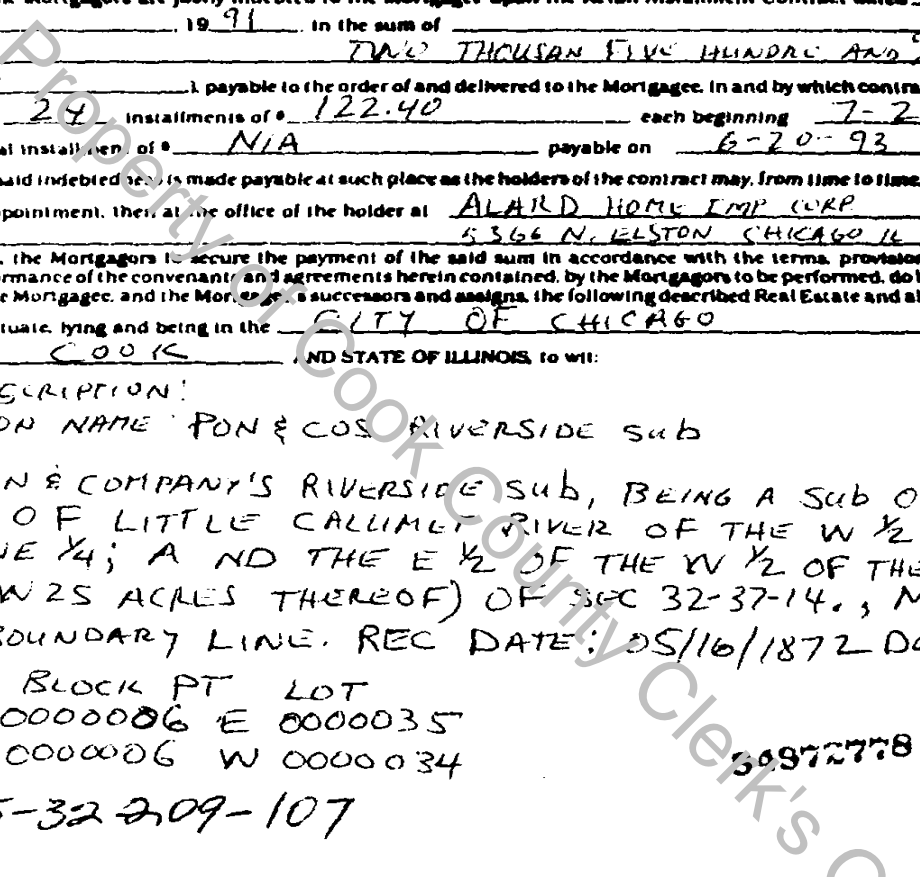 19 91 in the sum of
TWO THOUSAN FIVE HUNDRE AND
payable to the order of and delivered to the Mortgagee, in and by which contra
24 installments of $ 122.40 each beginning 7-2
al installment of $ N/A payable on 6-20-93
said indebtedness is made payable at such place as the holders of the contract may, from time to time
ppointment, then at the office of the holder at ALARD HOME IMP CORP
5366 N. ELSTON CHICAGO IL
, the Mortgagors to secure the payment of the said sum in accordance with the terms, provision
ormance of the convenants and agreements herein contained, by the Mortgagors to be performed, do
e Mortgagee, and the Mortgagee's successors and assigns, the following described Real Estate and al
tuate, lying and being in the CITY OF CHICAGO
COOK AND STATE OF ILLINOIS, to wit:
SCRIPTION:
ON NAME PON & COS RIVERSIDE Sub
N & COMPANY'S RIVERSIDE Sub, BEING A Sub O
OF LITTLE CALLIMET RIVER OF THE W 1/2
NE 1/4; A ND THE E 1/2 OF THE W 1/2 OF THE
W 25 ACRES THEREOF) OF SEC 32-37-14., N
BOUNDARY LINE. REC DATE: 05/16/1872 DO
BLOCK PT LOT
0000006 E 0000035
0000006 W 0000034
5-32-209-107
Property of Cook County Clerk's O